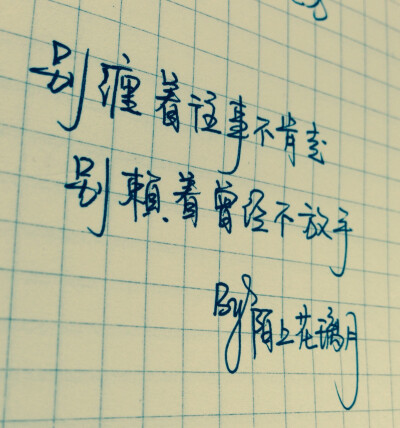 别缠着往事不肯走
别賴着曾经不放手
By 陌上花璃月